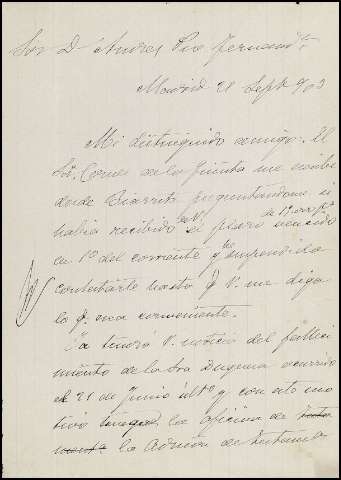 Sor D Andres Pio Fernand
Madrid 21 Sept 903
Mi distinguido amigo: El
Sr. Conde de la me escribe
desde Biarritz preguntandome si
habia recibido de V. el plazo vencido
en 1º del corriente y he suspendido
contestarle hasta q V. me diga
lo q. crea conveniente.
Ya tendrá V. noticia del falleci
miento de la Sra Duquesa ocurrido
el 21 de Junio ulto y con este mo
tivo la oficina de
la Admon de testamª